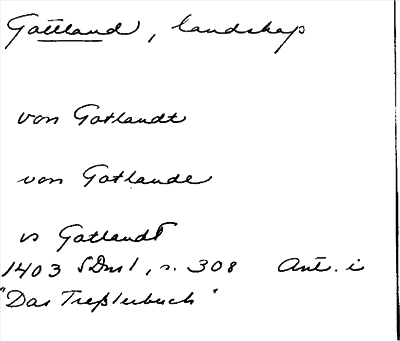 Gottland, landskap
von Gotlandt
von Gotlande
vs Gotlandt
1403 SDns 1, s. 308 Ant. i
"Das Treßlerbuch"